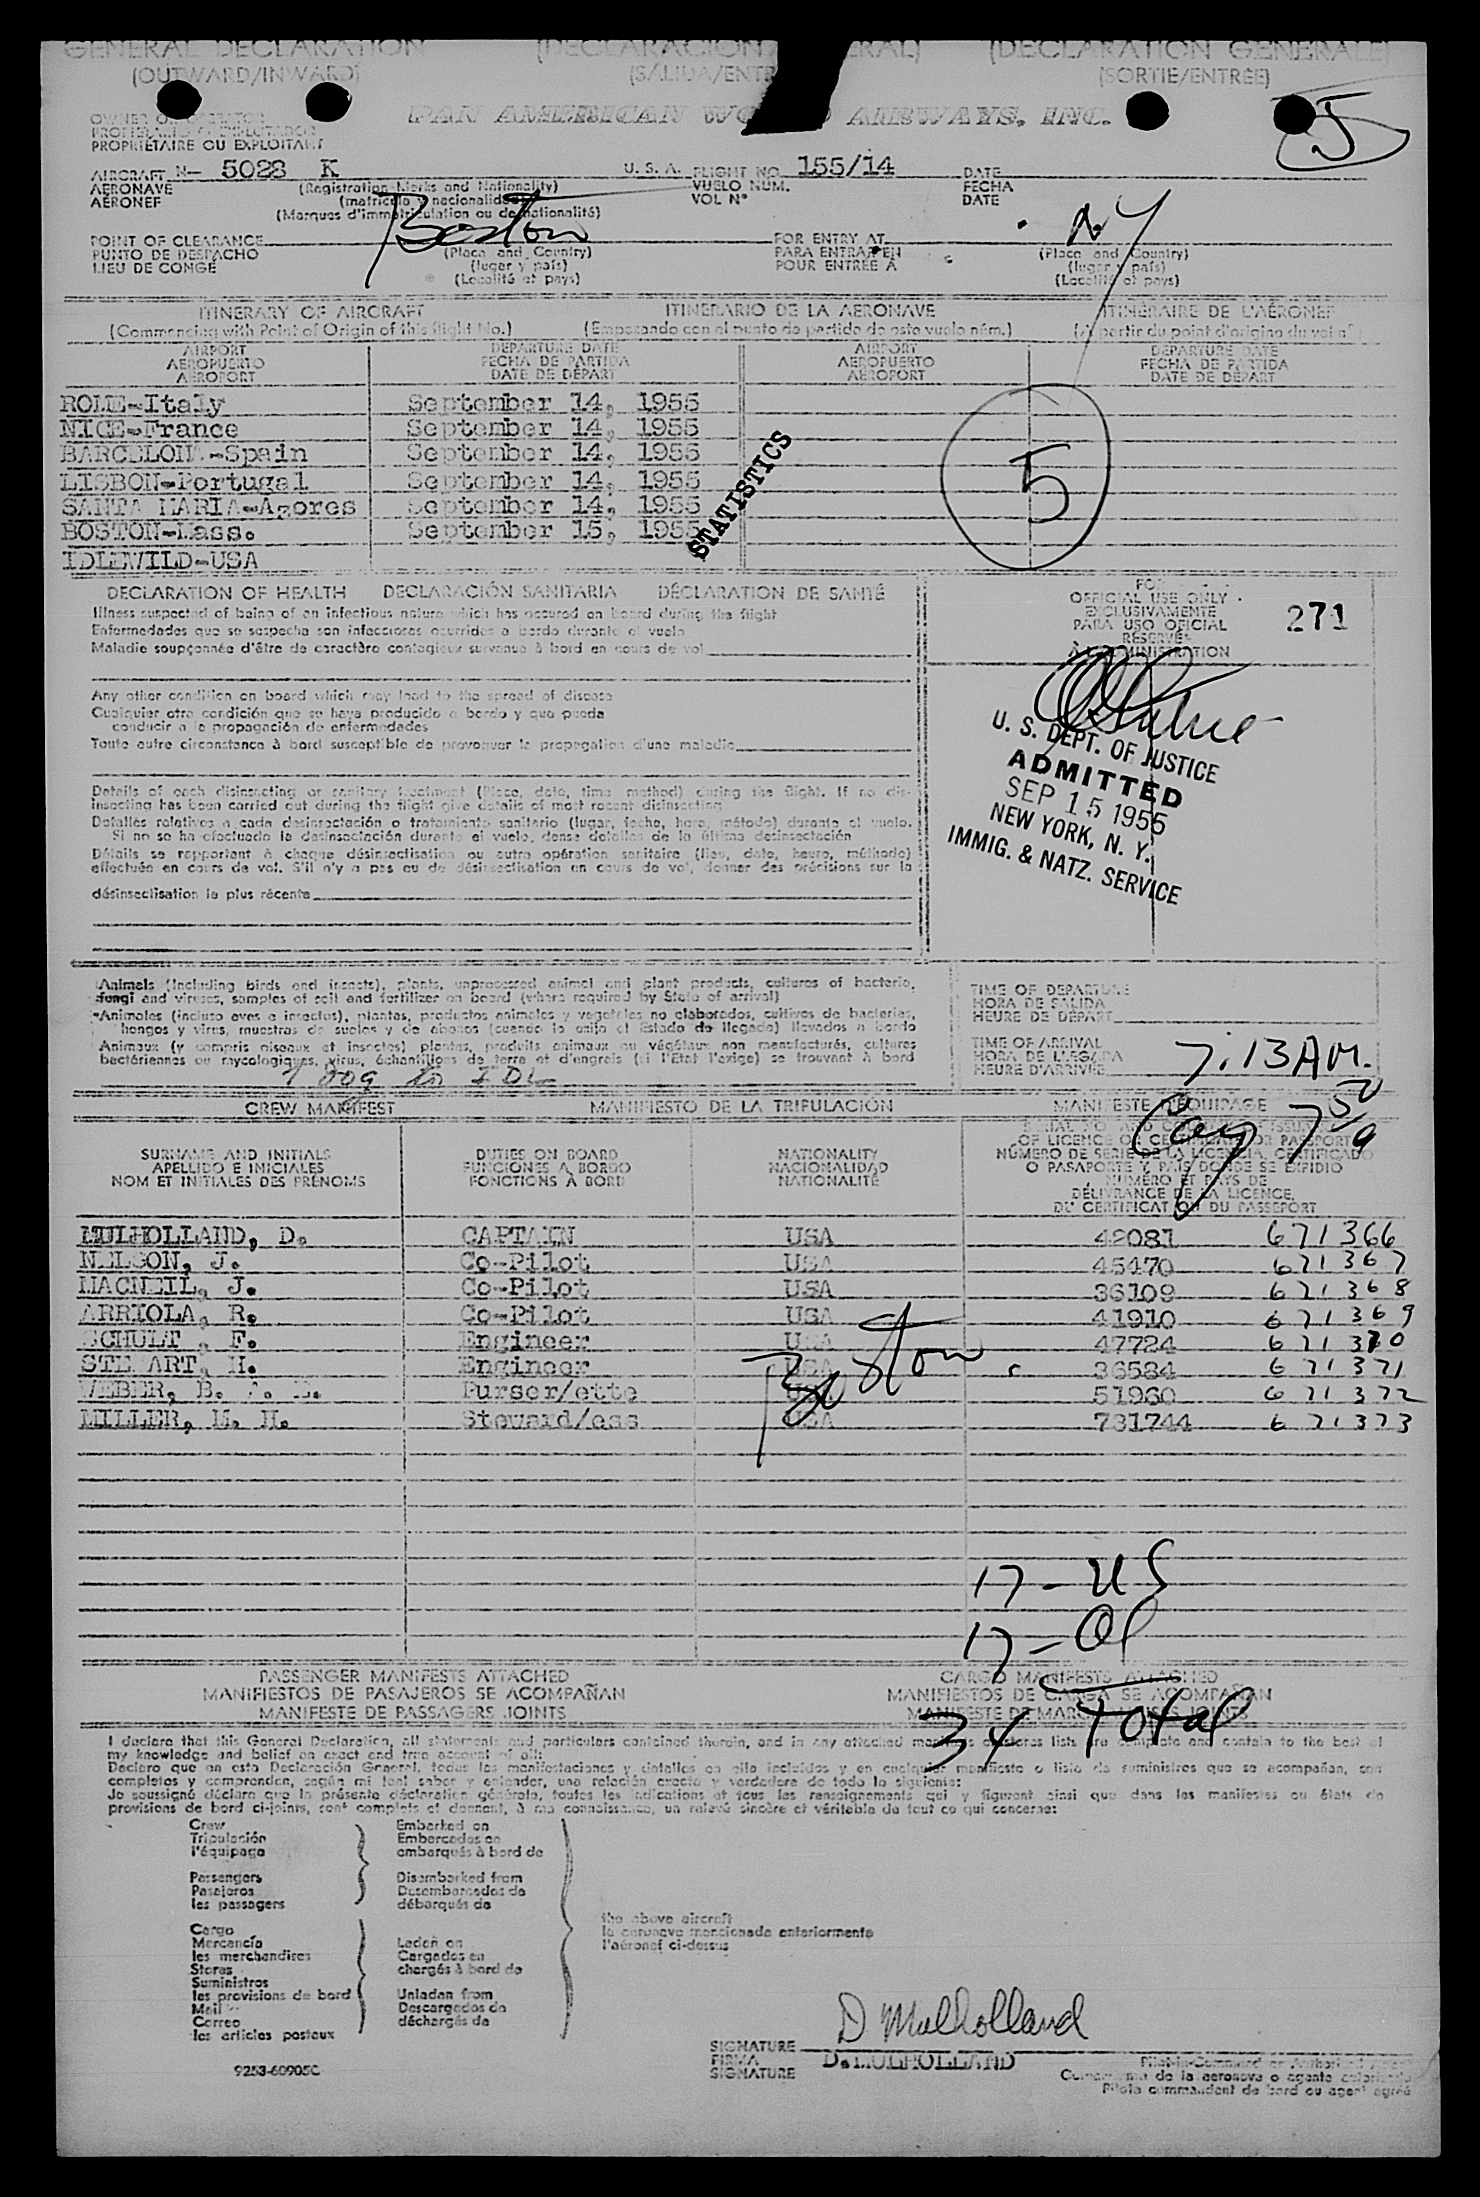 GENERAL DECLARATION (DECLARACION RAL) (DECLARATION GENERALE)
(OUTWARD/INWARD) (SALIDA/ENTR (SORTIE/ENTRÉE)
PAN AMERICAN WO D AIRWAYS, INC. 5
PROPRIÉTAIRE OU EXPLOITANT
AIRCRAFT N- 5028 K U. S. A. FLIGHT NO. 155/14 DATE
AERONAVE (Registration Marks and Nationality) VUELO NÚM. FECHA
AÉRONEF (matrícula y nacionalidad) VOL N° DATE
(Marques d'immatriculation ou de nationalité)
POINT OF CLEARANCE Boston FOR ENTRY AT NY
PUNTO DE DESPACHO (Place and Country) PARA ENTRAR EN (Place and Country)
LIEU DE CONGÉ (lugar y país) POUR ENTRÉE À (lugar y país)
(Localité et pays) (Localité et pays)
ITINERARY OF AIRCRAFT ITINERARIO DE LA AERONAVE ITINÉRAIRE DE L'AÉRONEF
(Commencing with Point of Origin of this flight No.) (Empezando con el punto de partida de este vuelo núm.) (A partir du point d'origine du vol n°
AIRPORT DEPARTURE DATE AIRPORT DEPARTURE DATE
AEROPUERTO FECHA DE PARTIDA AEROPUERTO FECHA DE PARTIDA
AÉROPORT DATE DE DÉPART AÉROPORT DATE DE DÉPART
ROME-Italy September 14, 1955
NICE-France September 14, 1955
BARCELONA-Spain September 14, 1955
LISBON-Portugal September 14, 1955
SANTA MARIA-Azores September 14, 1955
BOSTON-Mass. September 15, 1955
IDLEWILD-USA
STATISTICS
5
DECLARATION OF HEALTH DECLARACIÓN SANITARIA DÉCLARATION DE SANTÉ
Illness suspected of being of an infectious nature which has occured on board during the flight
Enfermedades que se sospecha son infecciosas ocurridas a bordo durante el vuelo
Maladie soupçonnée d'être de caractère contagieux survenue à bord en cours de vol
Any other condition on board which may lead to the spread of disease
Cualquier otra condición que se haya producido a bordo y que pueda
conducir a la propagación de enfermedades
Toute autre circonstance à bord susceptible de provoquer la propagation d'une maladie
Details of each disinsecting or sanitary treatment (Place, date, time method) during the flight. If no dis-
insecting has been carried out during the flight give details of most recent disinsecting
Detalles relativos a cada desinsectación o tratamiento sanitario (lugar, fecha, hora, método) durante el vuelo.
Si no se ha efectuado la desinsectación durante el vuelo, dense detalles de la última desinsectación
Détails se rapportant à chaque désinsectisation ou autre opération sanitaire (lieu, date, heure, méthode)
effectuée en cours de vol. S'il n'y a pas eu de désinsectisation en cours de vol, donner des précisions sur la
désinsectisation la plus récente
FOR
OFFICIAL USE ONLY
EXCLUSIVAMENTE
PARA USO OFICIAL
RÉSERVÉ
À L'ADMINISTRATION
271
U. S. DEPT. OF JUSTICE
ADMITTED
SEP 15 1955
NEW YORK, N. Y.
IMMIG. & NATZ. SERVICE
Animals (including birds and insects), plants, unprocessed animal and plant products, cultures of bacteria,
fungi and viruses, samples of soil and fertilizer on board (where required by State of arrival)
Animales (incluso aves e insectos), plantas, productos animales y vegetales no elaborados, cultivos de bacterias,
hongos y virus, muestras de suelos y de abonos (cuando lo exija el Estado de llegada) llevados a bordo
Animaux (y compris oiseaux et insectes) plantes, produits animaux ou végétaux non manufacturés, cultures
bactériennes ou mycologiques, virus, échantillons de terre et d'engrais (si l'Etat l'exige) se trouvant à bord
1 dog to IDL
TIME OF DEPARTURE
HORA DE SALIDA
HEURE DE DÉPART
TIME OF ARRIVAL
HORA DE LLEGADA
HEURE D'ARRIVÉE 7:13 AM.
CREW MANIFEST MANIFIESTO DE LA TRIPULACIÓN MANIFESTE D'ÉQUIPAGE
SURNAME AND INITIALS DUTIES ON BOARD NATIONALITY OF LICENCE OR CERTIFICATE OR PASSPORT
APELLIDO E INICIALES FUNCIONES A BORDO NACIONALIDAD NÚMERO DE SERIE DE LA LICENCIA, CERTIFICADO
NOM ET INITIALES DES PRÉNOMS FONCTIONS À BORD NATIONALITÉ O PASAPORTE Y PAÍS DONDE SE EXPIDIO
NUMÉRO ET PAYS DE
DÉLIVRANCE DE LA LICENCE,
DU CERTIFICAT OU DU PASSEPORT
MULHOLLAND, D. CAPTAIN USA 42081 671366
NELSON, J. Co-Pilot USA 45470 671367
MACNEIL, J. Co-Pilot USA 36109 671368
ARRIOLA, R. Co-Pilot USA 41910 671369
SCHULT , F. Engineer USA 47724 671370
STEWART, H. Engineer USA 36584 671371
WEBER, B. Purser/ette USA 51960 671372
MILLER, M. H. Steward/ess USA 731744 671373
Boston
17 - US
17 - Al
34 Total
PASSENGER MANIFESTS ATTACHED CARGO MANIFESTS ATTACHED
MANIFIESTOS DE PASAJEROS SE ACOMPAÑAN MANIFIESTOS DE CARGA SE ACOMPAÑAN
MANIFESTE DE PASSAGERS JOINTS
I declare that this General Declaration, all statements and particulars contained therein, and in any attached manifests or stores lists are complete and contain to the best of
my knowledge and belief an exact and true account of all:
Declaro que en esta Declaración General, todas las manifestaciones y detalles en ella incluidos y en cualquier manifiesto o lista de suministros que se acompañan, son
completos y comprenden, según mi leal saber y entender, una relación exacta y verdadera de todo lo siguiente:
Je soussigné déclare que la présente déclaration générale, toutes les indications et tous les renseignements qui y figurent ainsi que dans les manifestes ou états de
provisions de bord ci-joints, sont complets et donnent, à ma connaissance, un relevé sincère et véritable de tout ce qui concerne:
Crew Embarked on
Tripulación Embarcados en
l'équipage embarqués à bord de
Passengers Disembarked from
Pasajeros Desembarcados de
les passagers débarqués de
the above aircraft
la aeronave mencionada anteriormente
l'aéronef ci-dessus
Cargo
Mercancía Laden on
les merchandises Cargados en
Stores chargés à bord de
Suministros
les provisions de bord Unladen from
Mail Descargados de
Correo déchargés de
les articles postaux
D Mulholland
SIGNATURE
FIRMA D. MULHOLLAND
SIGNATURE
Pilot-in-Command or Authorized
de la aeronave o agente autorizado
Pilote commandant de bord ou agent agréé
9253-60905C